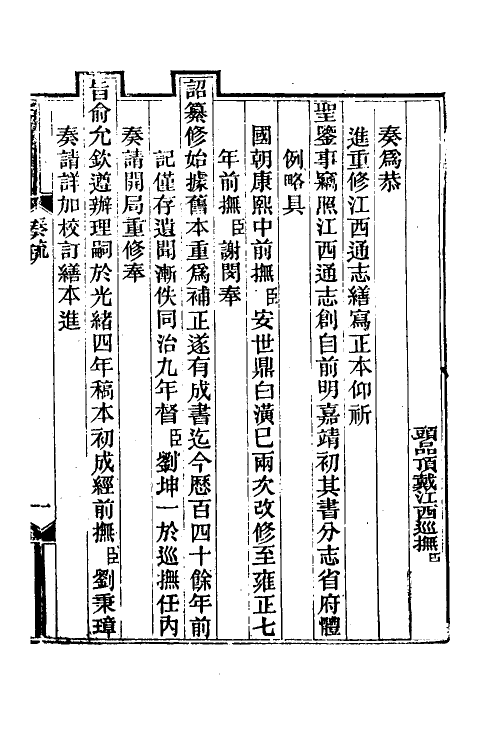 頭品頂戴江西巡撫臣
奏爲恭
進重修江西通志繕寫正本仰祈
聖鑒事竊照江西通志創自前明嘉靖初其書分志省府體
例略具
國朝康熙中前撫臣安世鼎白潢已兩次改修至雍正七
年前撫臣謝閔奉
詔纂修始據舊本重爲補正遂有成書迄今歷百四十餘年前
記僅存遺聞漸佚同治九年督臣劉坤一於巡撫任內
奏請開局重修奉
旨俞允欽遵辦理嗣於光緒四年稿本初成經前撫臣劉秉璋
奏請詳加校訂繕本進
奏疏
一